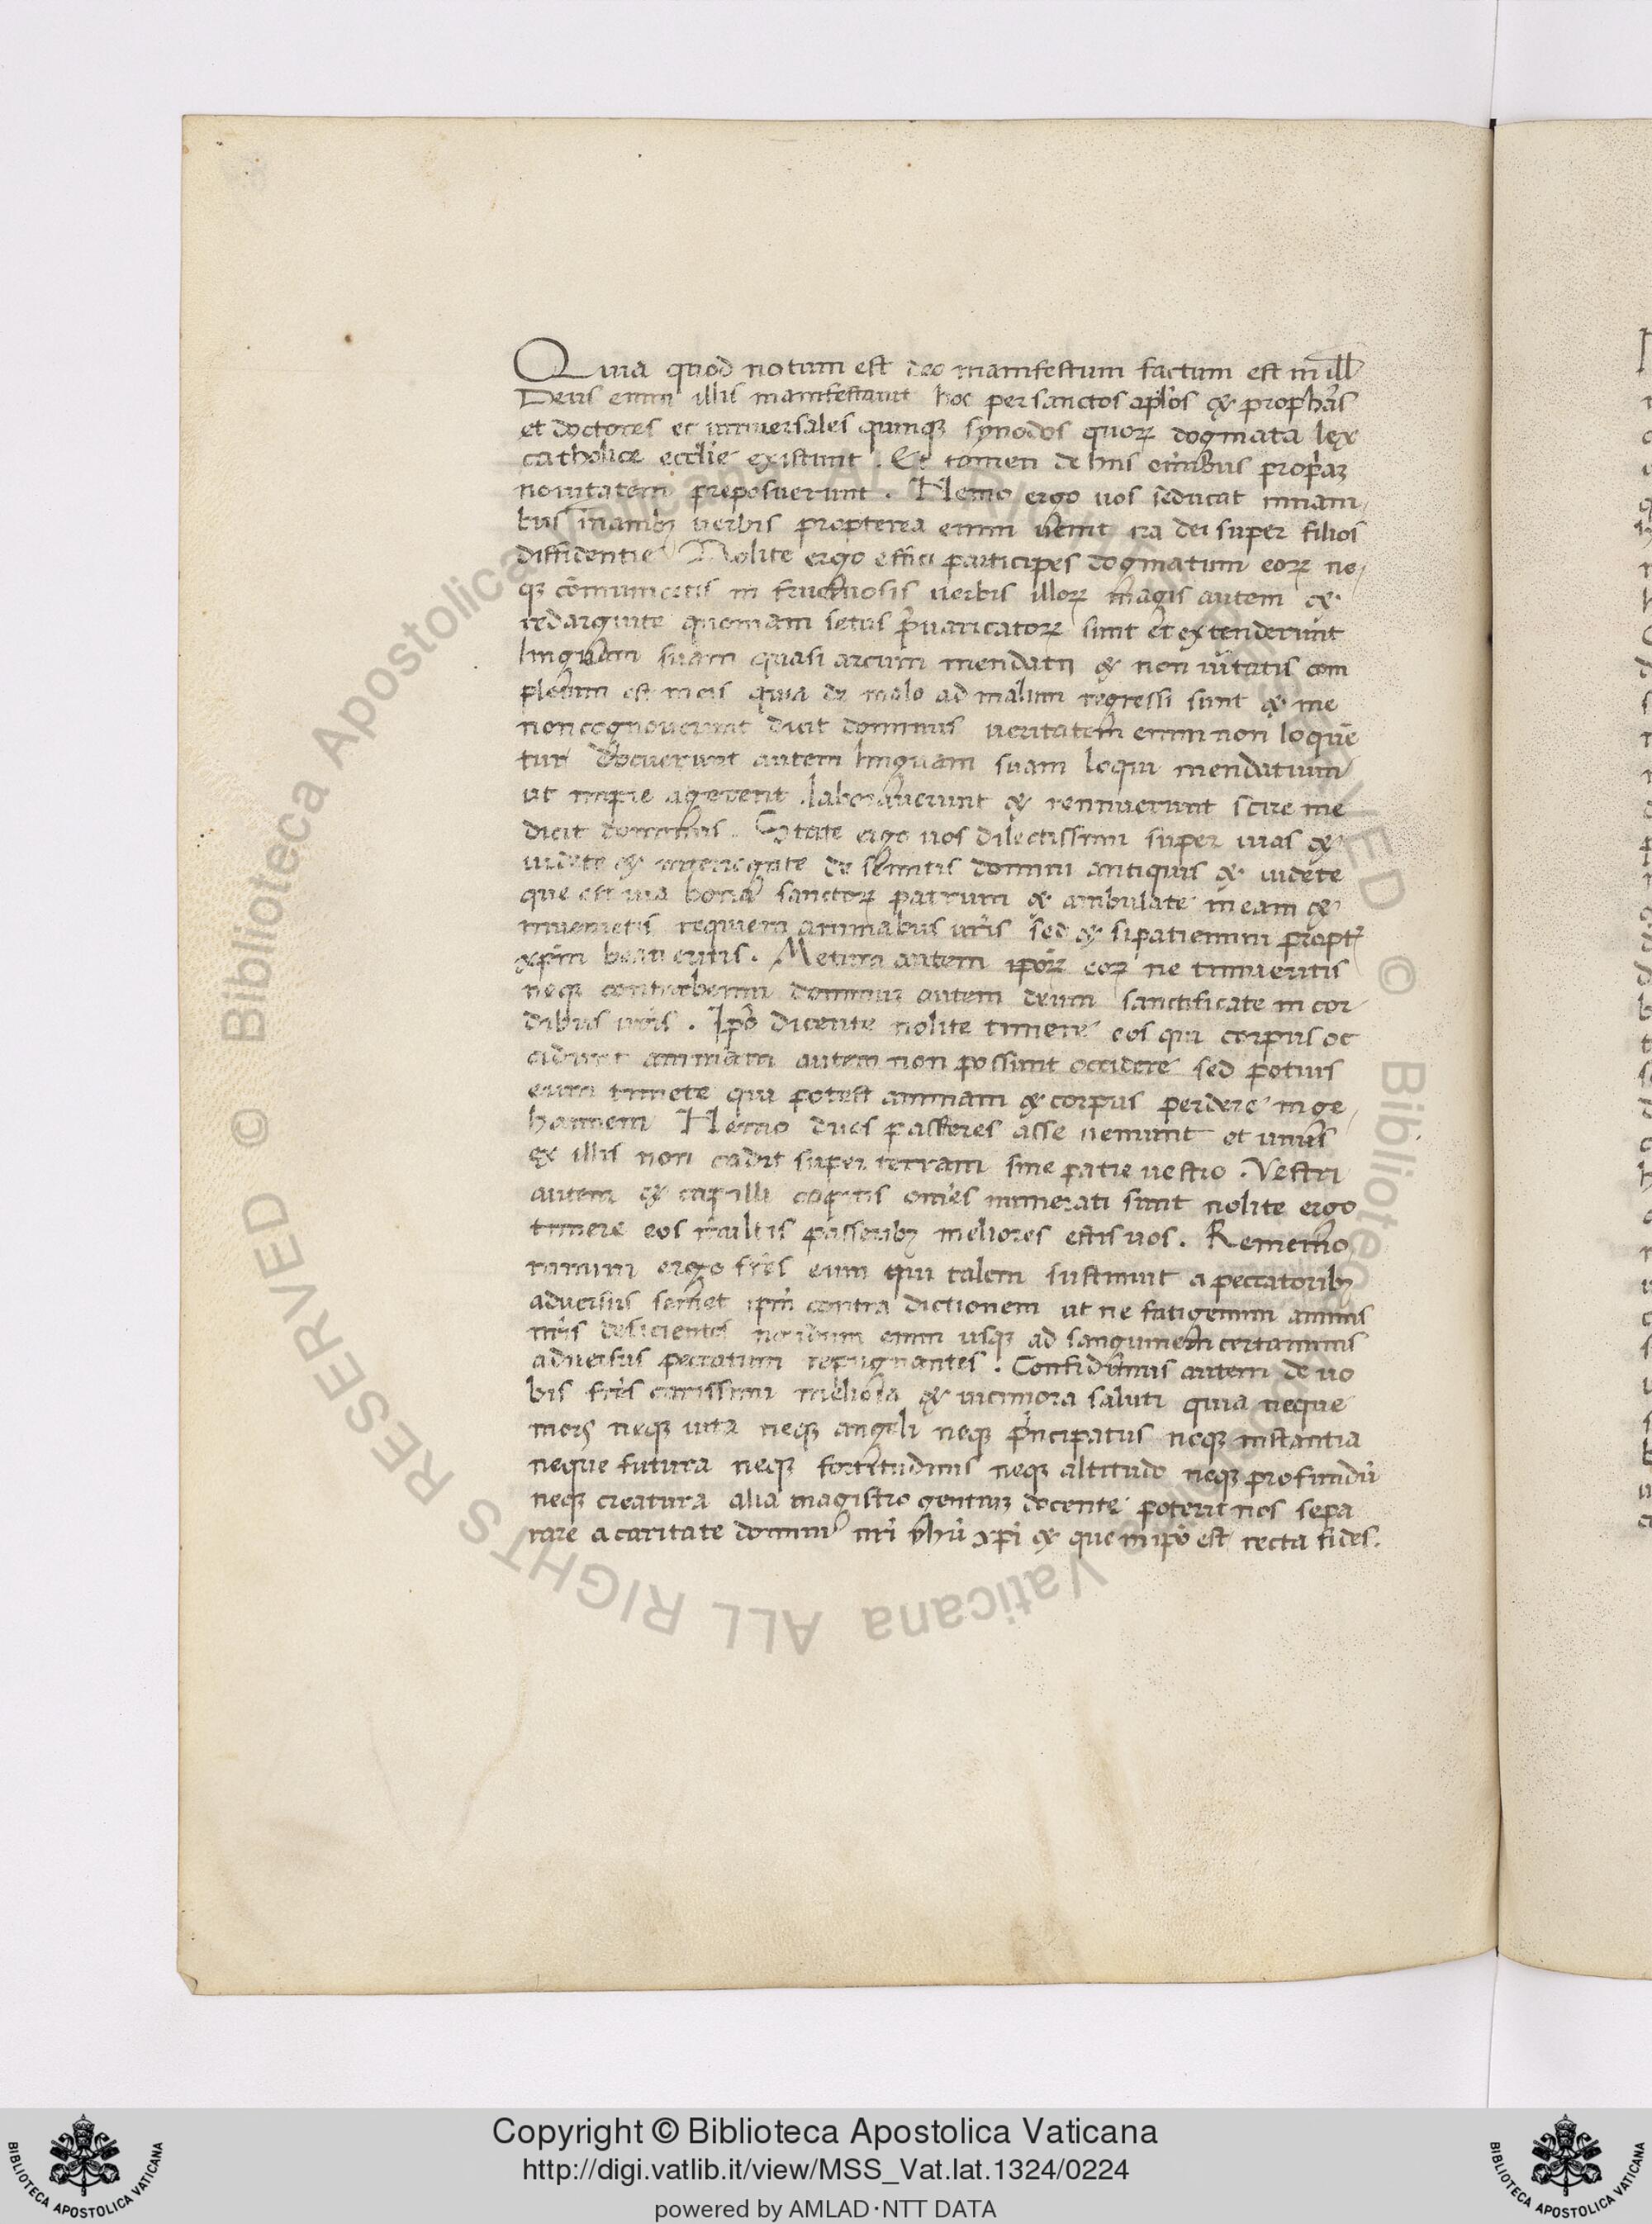 Quia quod notum est deo manifestum factum est in ill̃
Deus enim illis manifestavit hoc per sanctos apl̃os & prophãs
et doctores et universales quinqꝫ synodos quoꝝ dogmata lex
catholice eccl̃ie existunt. Et tamen de hiis om̃ibus propaꝝ
novitatem preposuerunt. Nemo ergo vos seducat innani
bus inanibꝫ verbis propterea enim venit ira dei super filios
diffidentie Nolite ergo effici participes dogmatum eoꝝ ne
qꝫ cõmunicetis in fructuosis verbis illoꝝ magis autem &
redarguite quoniam setus p̃varicatoꝝ sunt et extenderunt
linguam suam quasi arcum mendatii & non v̓tutis com
pletum est in eis quia de malo ad malum regressi sunt & me
non cognoverunt dicit dominus veritatem enim non loquẽ
tur Docuerunt autem linguam suam loqui mendatium
ut impie agerent laboraverunt & rennuerunt scire me
dicit dominus. State ergo vos dilectissimi super vias &
videte & interrogate de semitis domini antiquis & videte
que est via bona sanctoꝝ patrum & ambulate in eam &
invenietis requiem animabus vr̃is sed & si patiemini propt̃
xp̃m beati eritis. Metum autem ip̃oꝝ eoꝝ ne timueritis
neqꝫ conturbemini dominuꝫ autem deum sanctificate in cor
dibus vr̃is. Ip̃o dicente nolite timere eos qui corpus oc
cidunt animam autem non possunt occidere sed potius
eum timete qui potest animam & corpus perdere in ge
hannem Nemo duos passeres asse veniunt et unus
ex illis non cadit super terram sine patre vestro. Vestri
autem & capilli capitis om̃es numerati sunt nolite ergo
timere eos multis passeribꝫ meliores estis vos. Rememo
ramini ergo fr̃es eum qui talem sustinuit a peccatoribꝫ
adversus semet ip̃m contra dictionem ut ne fatigemini animis
vr̃is deficientes nondum enim usqꝫ ad sanguinem certamimis
adversus peccatum repugnantes. Confidimus autem de vo
bis fr̃es carissimi meliora & vicinnora saluti quia neque
mors neqꝫ vita neqꝫ angeli neqꝫ p̃ncipatus neqꝫ instantia
neque futura neqꝫ fortitudinis neqꝫ altitudo neqꝫ profundũ
neqꝫ creatura alia magistro gentiuꝫ docente poterit nos sepa
rare a caritate domini nr̃i yhũ xp̃i & que in ip̃o est recta fides.
© Biblioteca Apostolica Vaticana ALL RIGHTS RESERVED © Biblioteca Apostolica Vaticana ALL RIGHTS RESERVED
Copyright © Biblioteca Apostolica Vaticana
http://digi.vatlib.it/view/MSS_Vat.lat.1324/0224
powered by AMLAD·NTT DATA
BIBLIOTECA APOSTOLICA VATICANA
BIBLIOTECA APOSTOLICA VATICANA